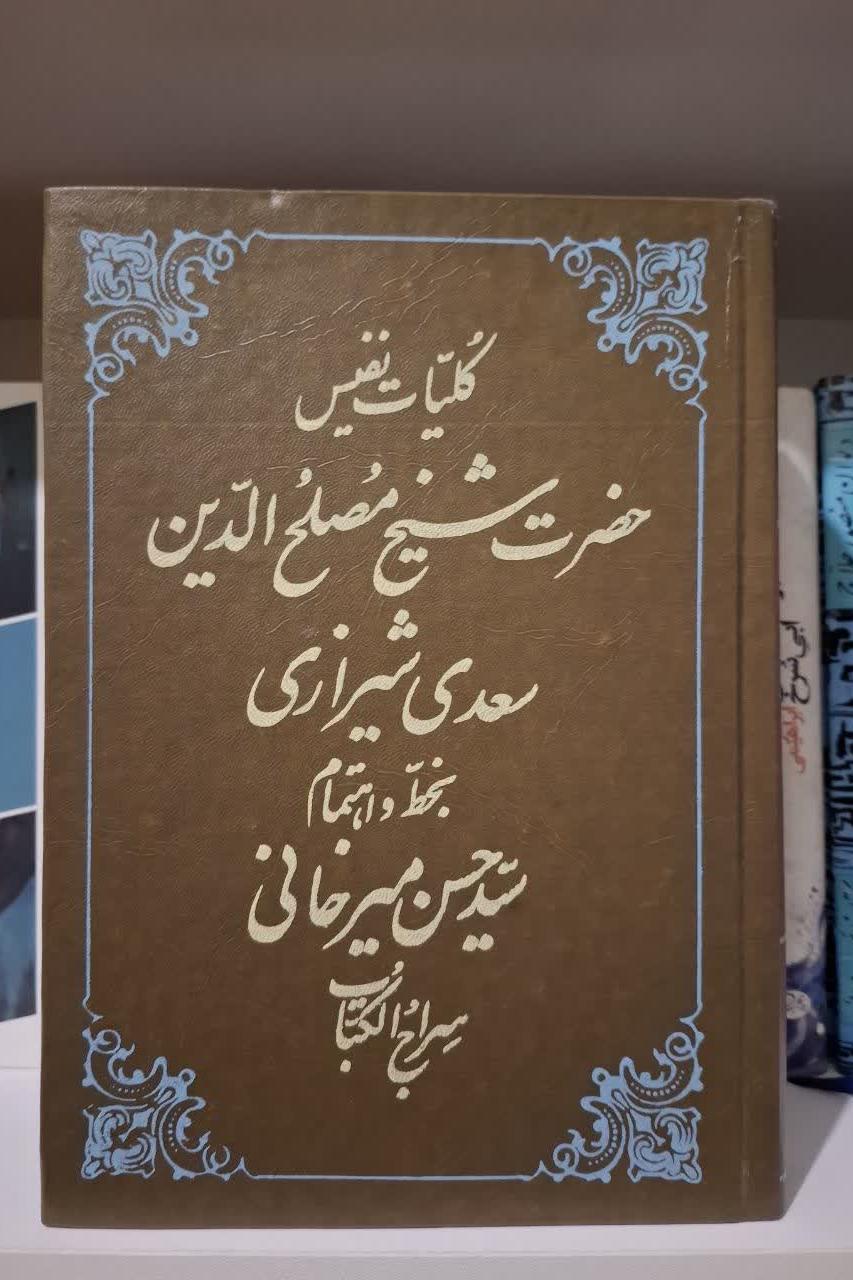 کُلیّات نفیس
حضرت شیخ مُصلحُ الدّین
سعدی شیرازی
بخطّ و اهتمام
سیّد حسن میرخانی
سِراجُ الکُتّاب